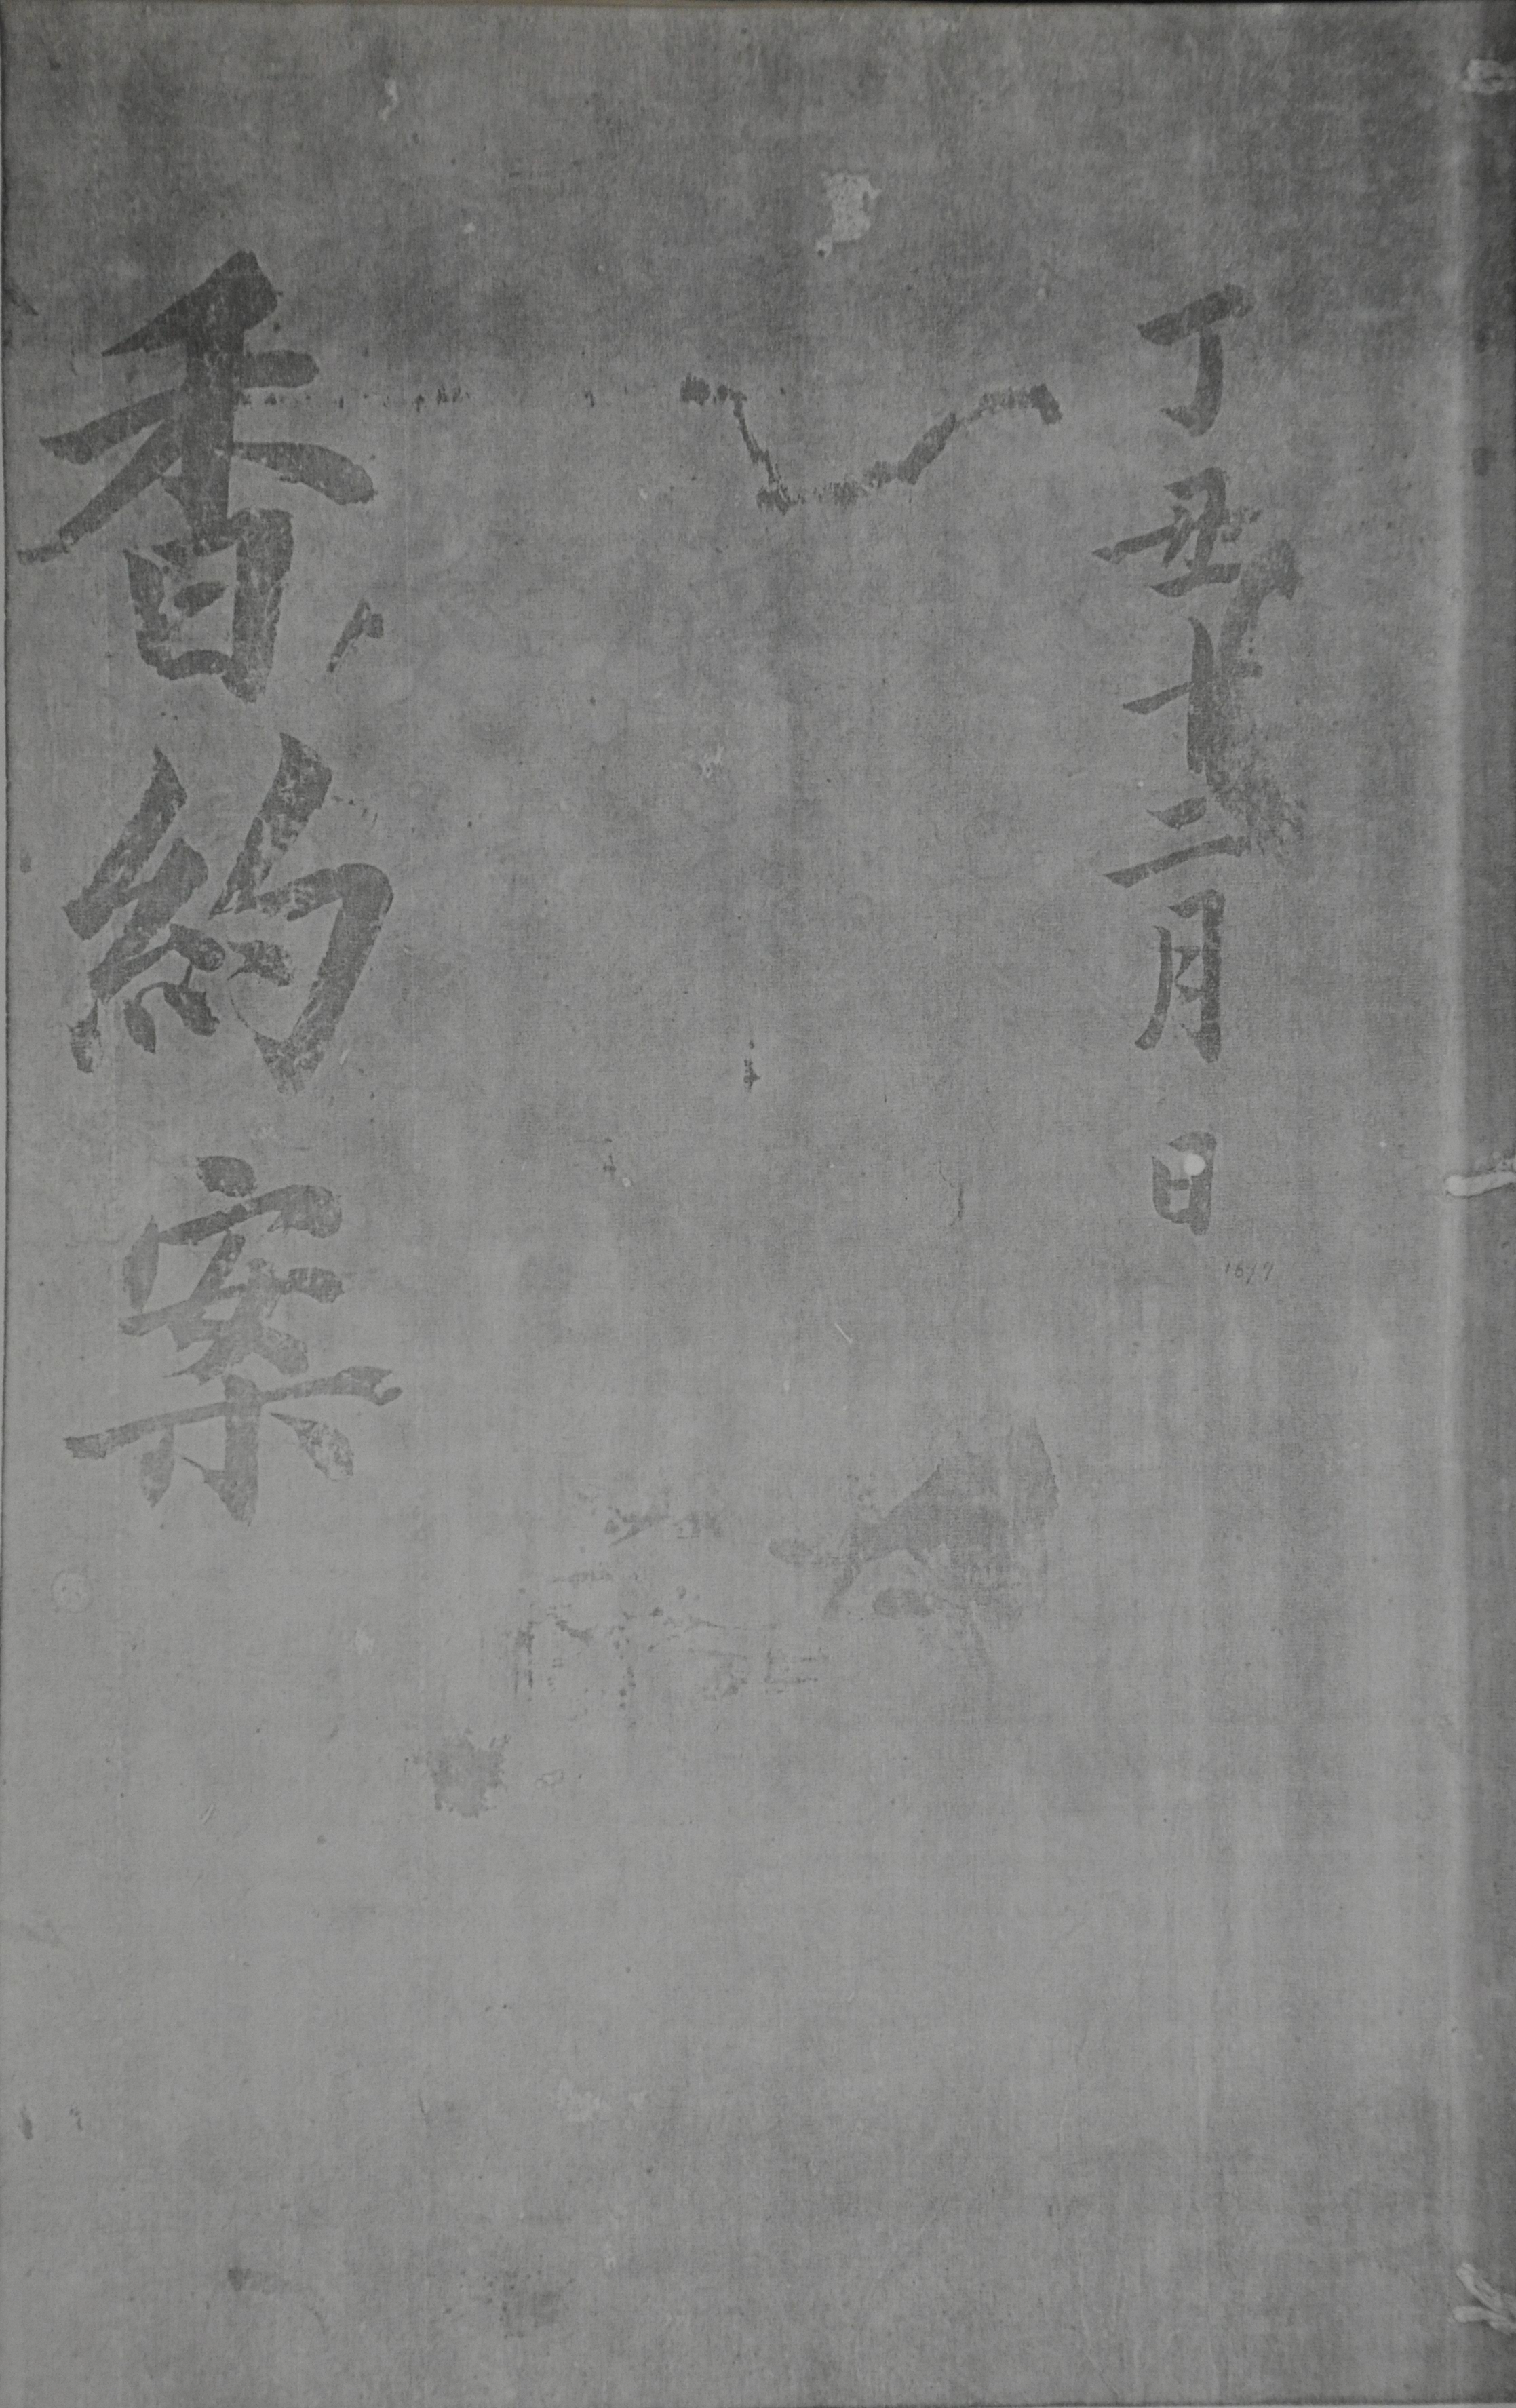 丁丑十二月 日
1697
香約案